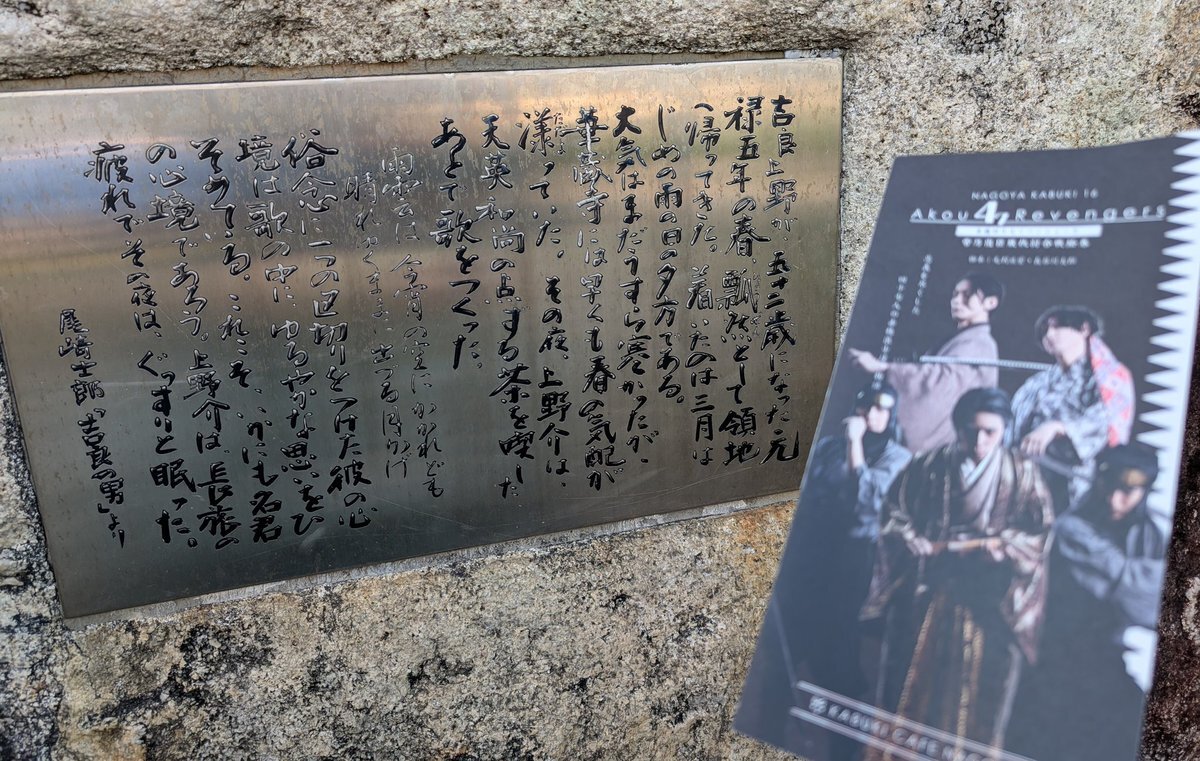 吉良上野が、五十二歳になった元
禄五年の春、瓢然として領地
へ帰ってきた。着いたのは三月は
じめの雨の日の夕方である。
大気はまだうすら寒かったが、
華蔵寺には早くも春の気配が
漾っていた。その夜、上野介は、
天英和尚の点する茶を喫した
あとで歌をつくった。
雨雲は今宵の空にかかれども
晴れゆくままに出づる月かげ
俗念に一つの区切りをつけた彼の心
境は歌の中に、ゆるやかな思いをひ
そめている。これこそ、いかにも名君
の心境であろう。上野介は、長旅の
疲れでその夜は、ぐっすりと眠った。
尾崎士郎「吉良の男」より
NAGOYA KABUKI 16
Akou 47 Revengers
KABUKI CAFE